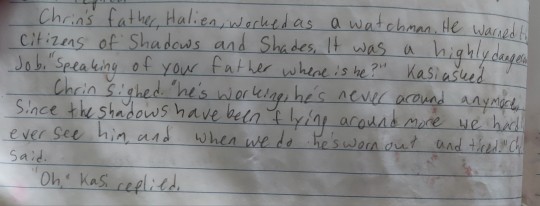 Chrin's father, Halien, worked as a watchman. He warned
citizens of Shadows and Shades. It was a highly
Job. "speaking of your father where is he?" Kasi asked
Chrin sighed "he's working, he's never around anymore,
Since the shadows have been flying around more we
ever see him, and when we do he's worn out and tired."
said.
"Oh," Kasi replied.